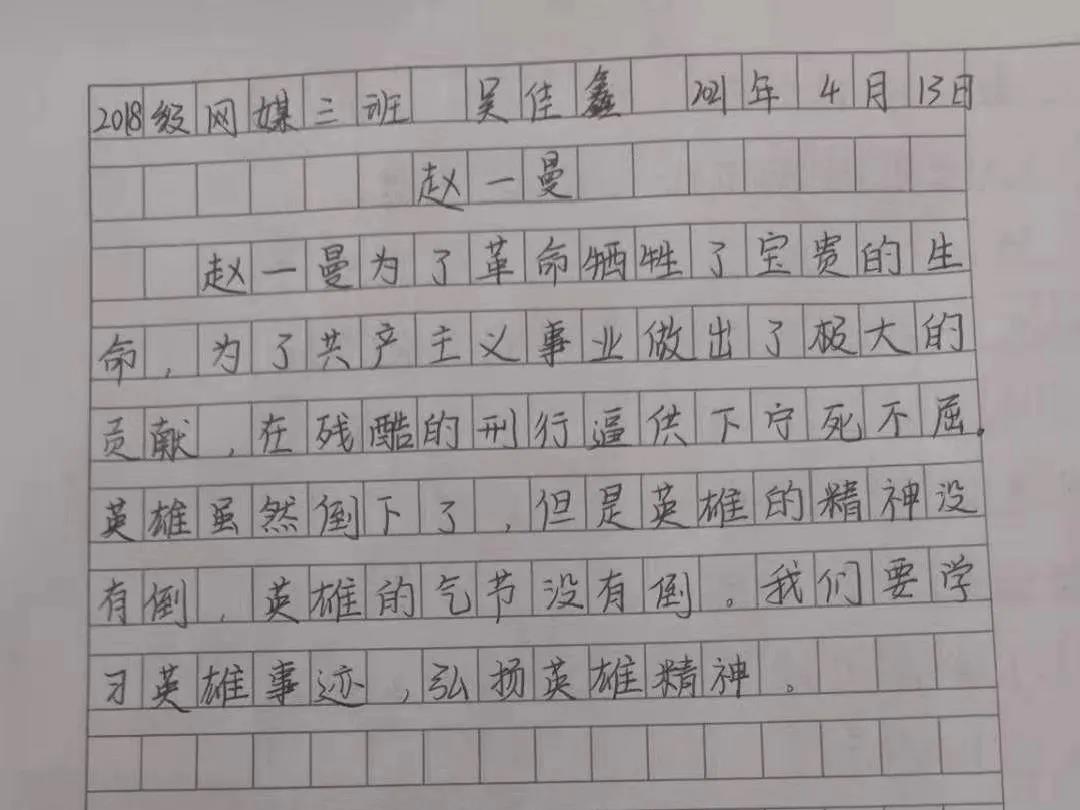 2018级网媒三班 吴佳鑫 2021年4月13日
赵一曼
赵一曼为了革命牺牲了宝贵的生
命，为了共产主义事业做出了极大的
贡献，在残酷的刑行逼供下宁死不屈。
英雄虽然倒下了，但是英雄的精神没
有倒，英雄的气节没有倒。我们要学
习英雄事迹，弘扬英雄精神。